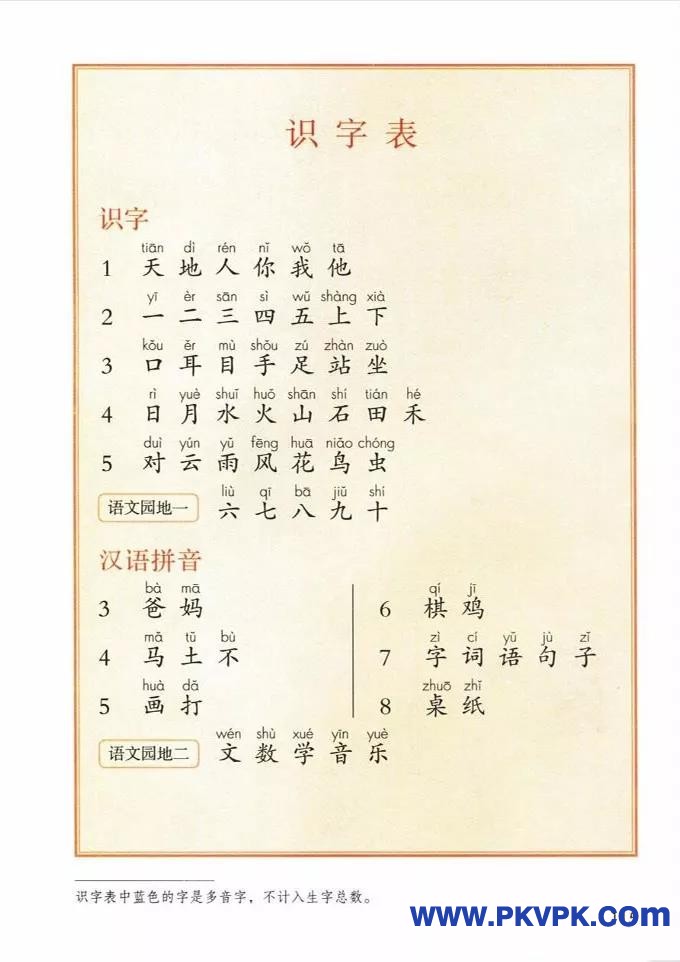 识字表
识字
tiān dì rén nǐ wǒ tā
1 天 地 人 你 我 他
yī èr sān sì wǔ shàng xià
2 一 二 三 四 五 上 下
kǒu ěr mù shǒu zú zhàn zuò
3 口 耳 目 手 足 站 坐
rì yuè shuǐ huǒ shān shí tián hé
4 日 月 水 火 山 石 田 禾
duì yún yǔ fēng huā niǎo chóng
5 对 云 雨 风 花 鸟 虫
liù qī bā jiǔ shí
语文园地一 六 七 八 九 十
汉语拼音
bà mā
3 爸 妈
mǎ tǔ bù
4 马 土 不
huà dǎ
5 画 打
qí jī
6 棋 鸡
zì cí yǔ jù zǐ
7 字 词 语 句 子
zhuō zhǐ
8 桌 纸
wén shù xué yīn yuè
语文园地二 文 数 学 音 乐
识字表中蓝色的字是多音字，不计入生字总数。
WWW.PKVPK.com